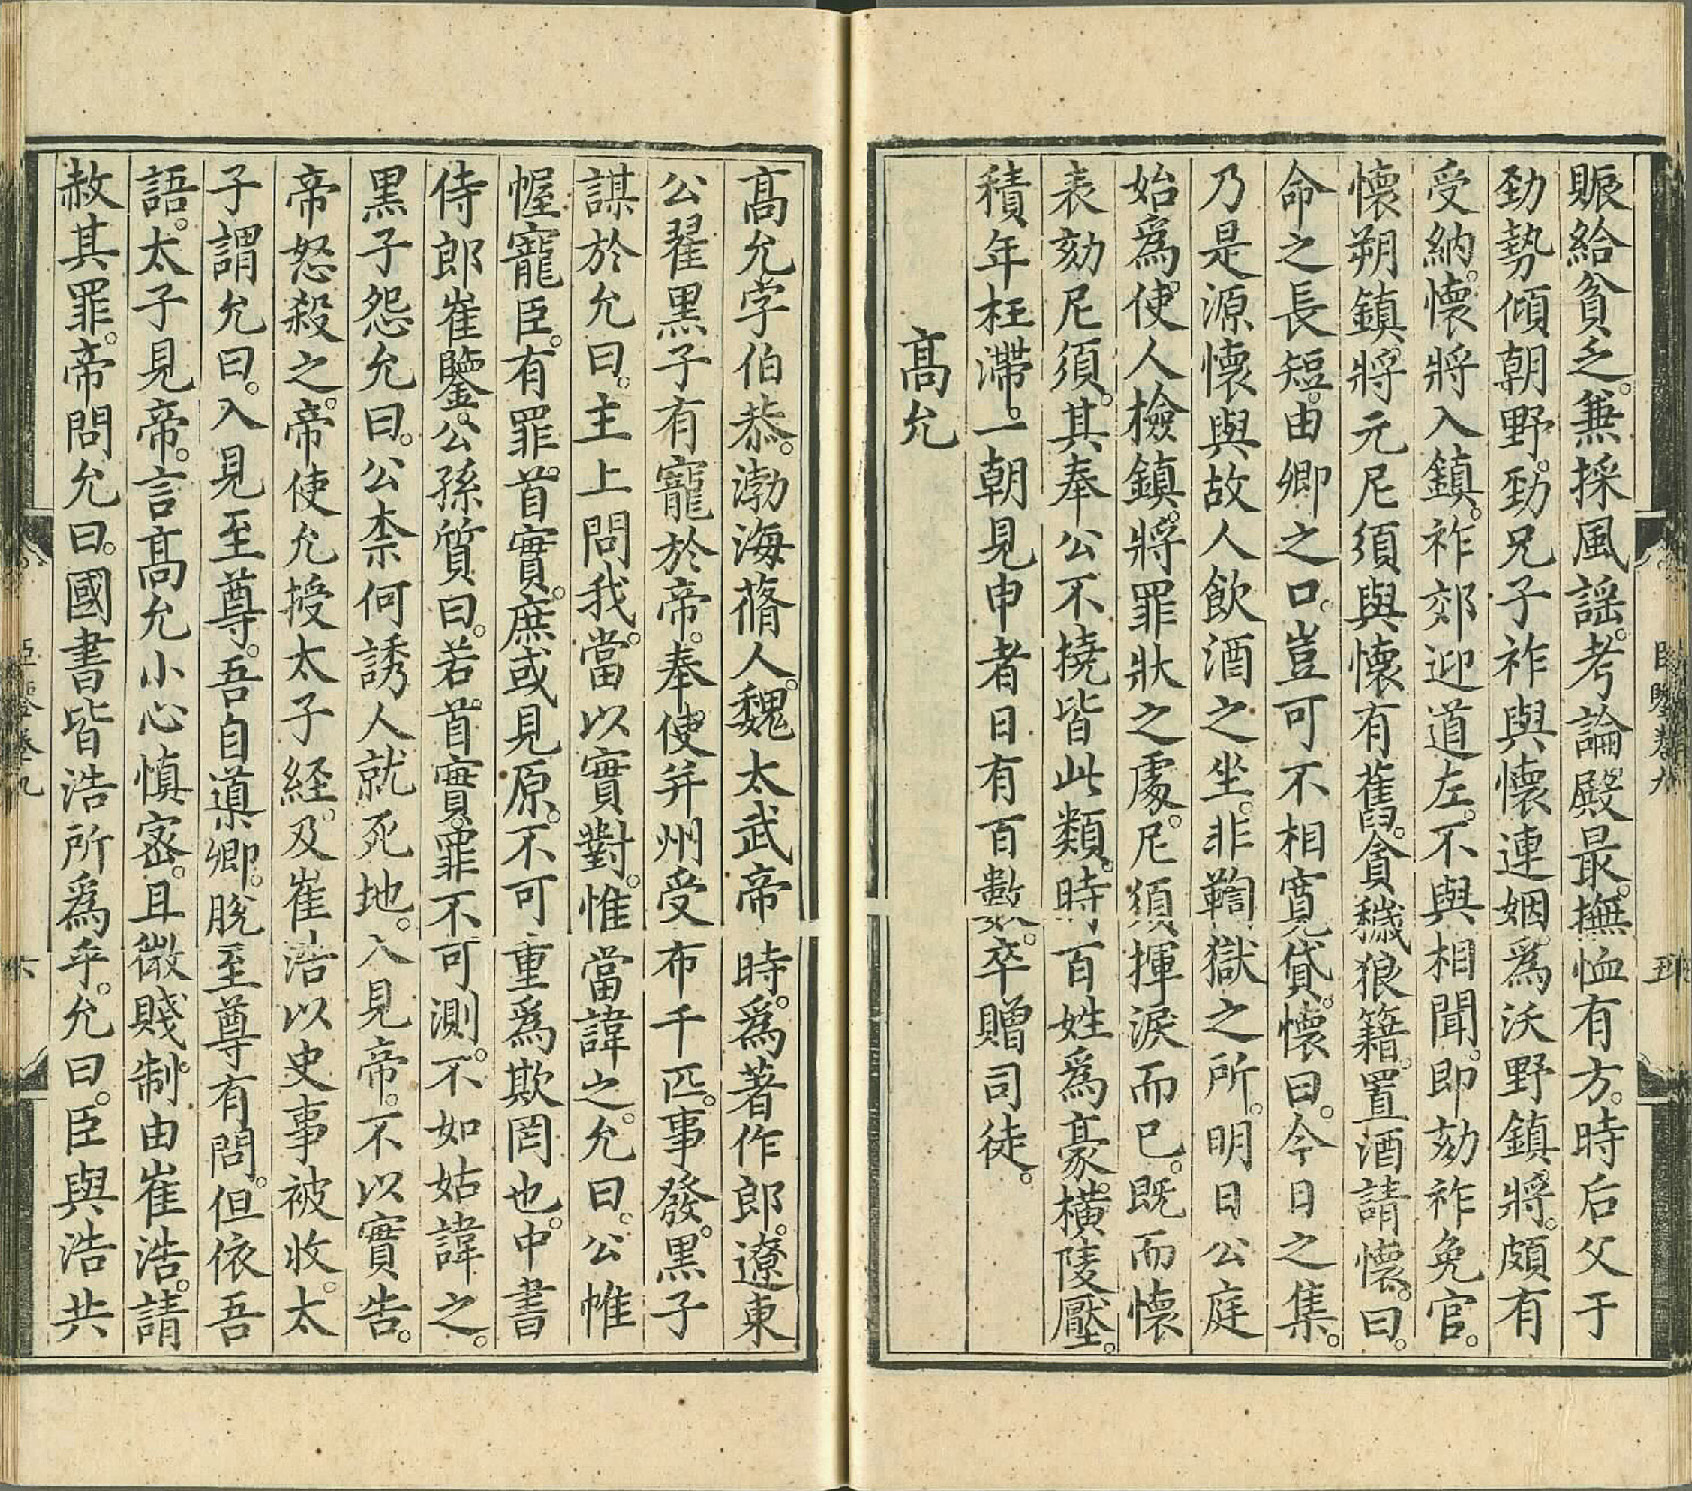 賑給貧乏。兼採風謡。考論殿最。撫恤有方。時后父于
勁勢傾朝野。勁兄子祚與懷連姻。為沃野鎮將。頗有
受納。懷將入鎮。祚郊迎道左。不與相聞。即劾祚免官。
懷朔鎮將元尼須與懷有舊。貪穢狼籍。置酒請懷。曰。
命之長短。由卿之口。豈可不相寬貸。懷曰。今日之集。
乃是源懷與故人飲酒之坐。非鞫獄之所。明日公庭
始為使人檢鎮將罪狀之處。尼須揮淚而已。既而懷
表劾尼須。其奉公不撓皆此類。時百姓為豪橫陵壓。
積年枉滯。一朝見申者日有百數。卒贈司徒。
髙允
髙允字伯恭。渤海蓨人。魏太武帝時。為著作郎。遼東
公翟黒子有寵於帝。奉使并州受布千匹。事發。黒子
謀於允曰。主上問我。當以實對。惟當諱之。允曰。公帷
幄寵臣。有罪。首實。庶或見原。不可重為欺罔也。中書
侍郎崔鑒。公孫質曰。若首實。罪不可測。不如姑諱之。
黒子怨允曰。公柰何誘人就死地。入見帝。不以實告。
帝怒殺之。帝使允授太子経。及崔浩以史事被收。太
子謂允曰。入見至尊。吾自導卿。脫至尊有問。但依吾
語。太子見帝。言髙允小心慎密。且微賤制由崔浩。請
赦其罪。帝問允曰。國書皆浩所為乎。允曰。臣與浩共